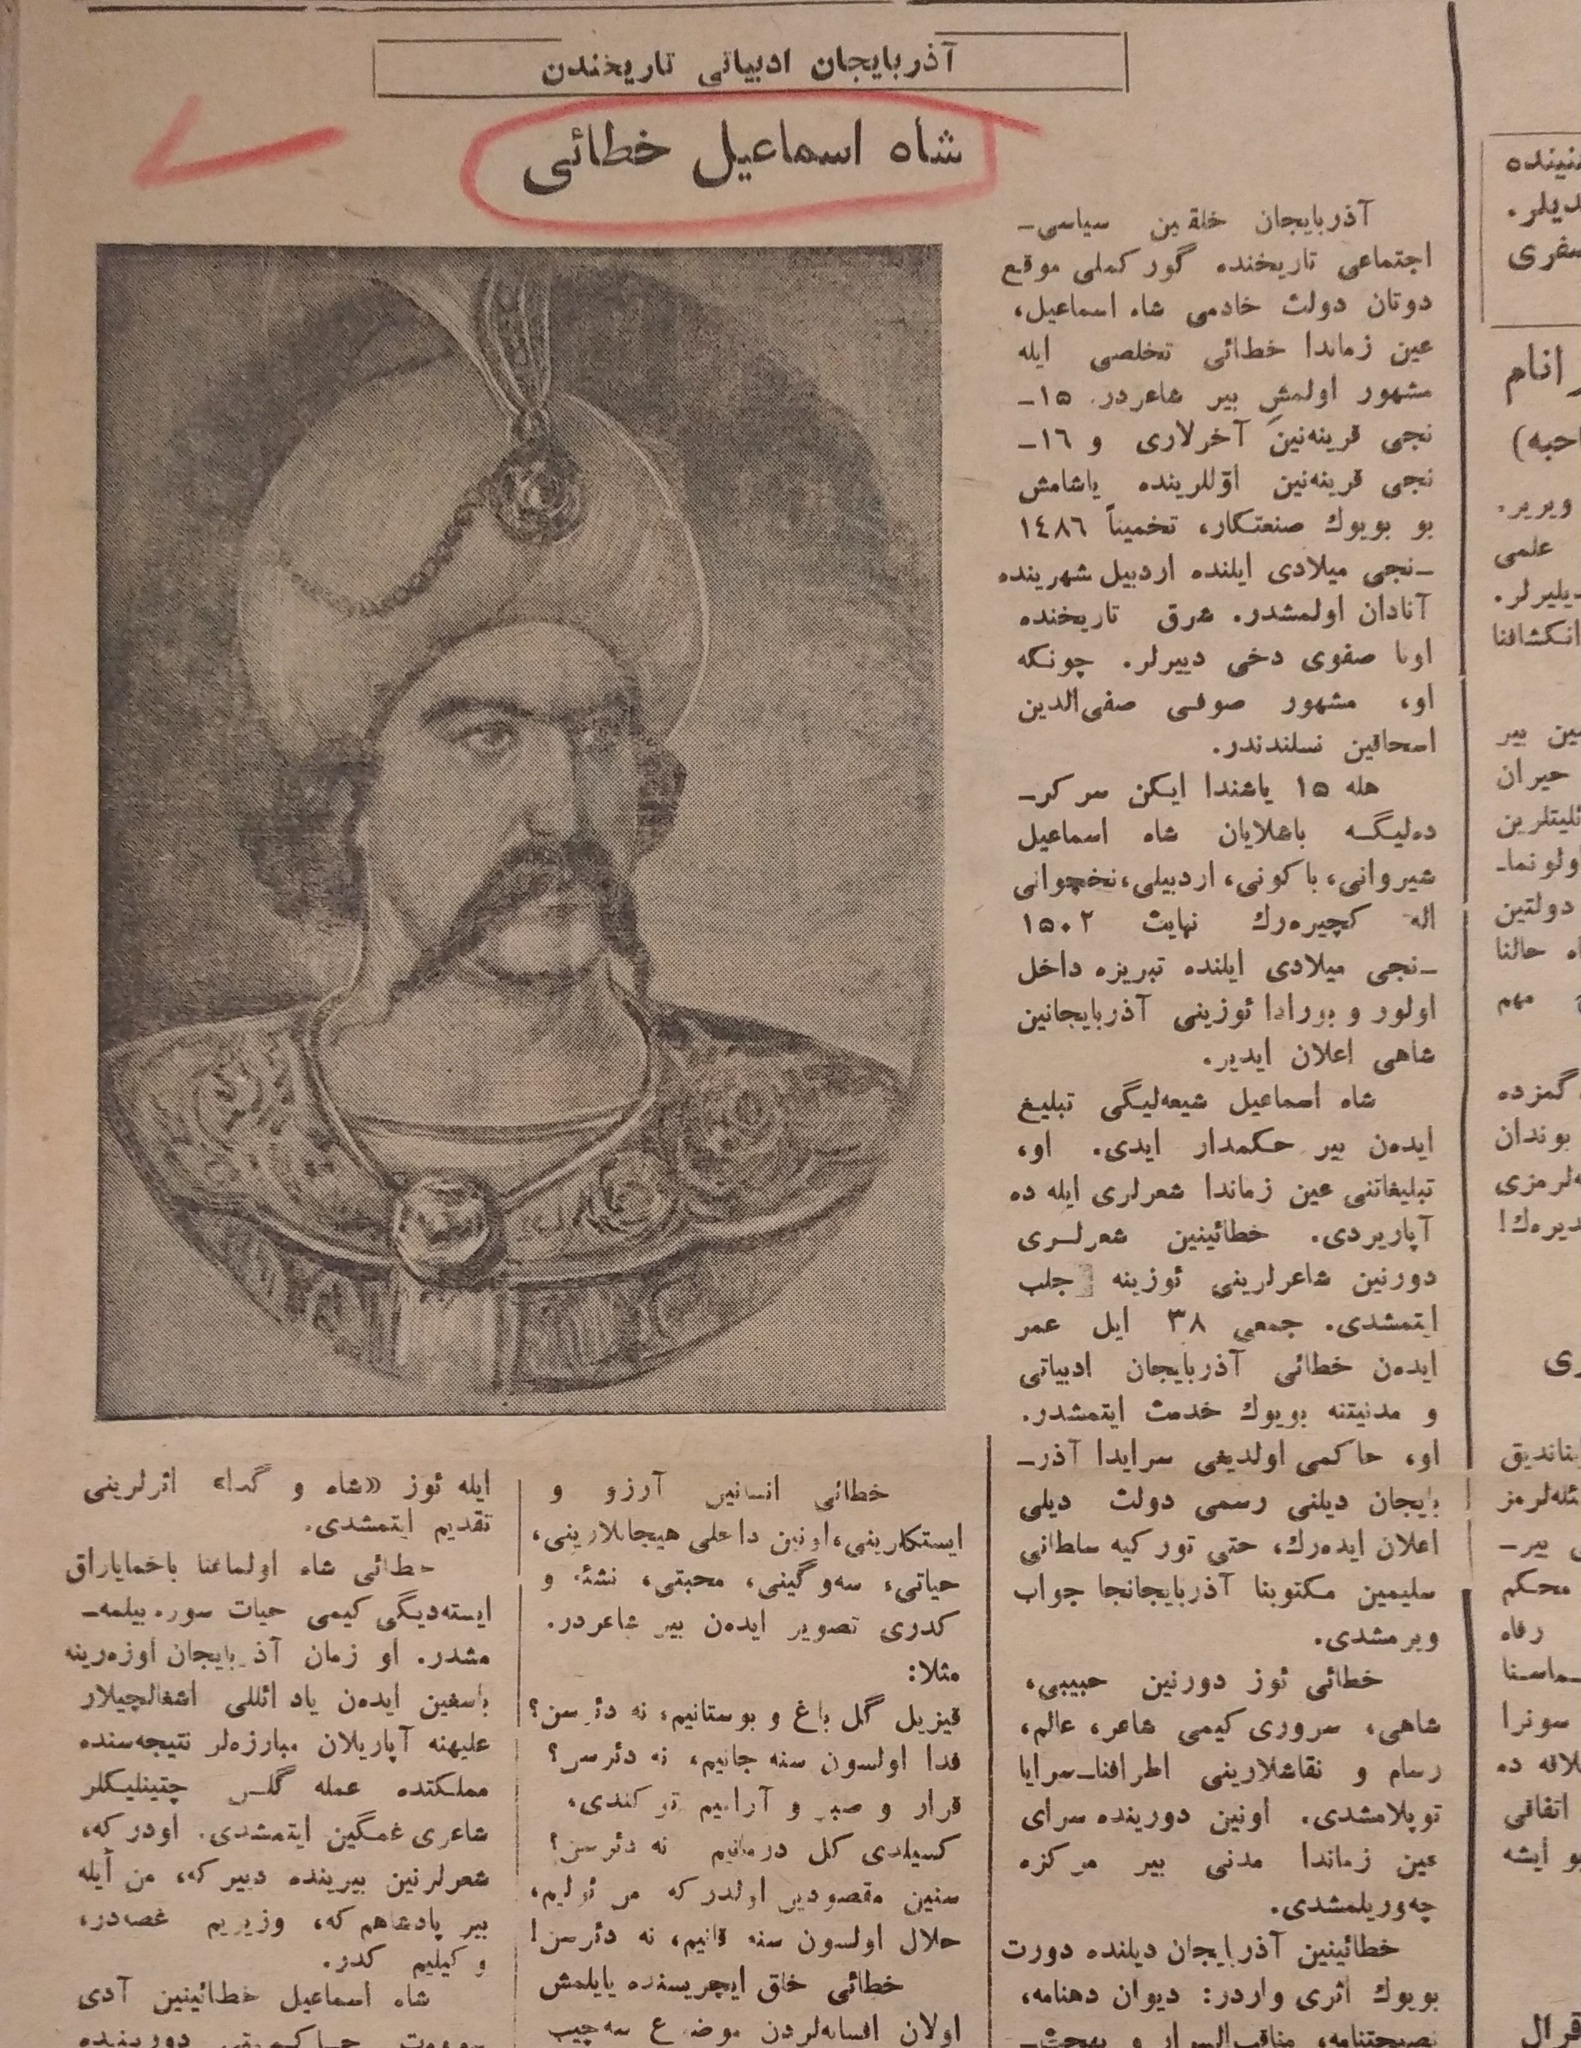 آذربایجان ادبیاتی تاریخندن
شاه اسماعیل خطائی
آذربایجان خلقین سیاسی–
اجتماعی تاریخنده گورکملی موقع
دوتان دولت خادمی شاه اسماعیل،
عین زماندا خطائی تخلصی ایله
مشهور اولمش بیر شاعردر. ۱۵–
نجی قرینه‌نین آخرلاری و ۱۶–
نجی قرینه‌نین اوّللرینده یاشامش
بو بویوك صنعتکار، تخمیناً ۱٤۸٦
–نجی میلادی ایلنده اردبیل شهرینده
آنادان اولمشدر. شرق تاریخنده
اونا صفوی دخی دییرلر. چونکه
او، مشهور صوفی صفی‌الدین
اسحاقین نسلندندر.
هله ۱۵ یاشندا ایکن سرکر–
ده‌لیگه باشلایان شاه اسماعیل
شیروانی، باکونی، اردبیلی، نخچوانی
اله کچیره‌رك نهایت ۱۵۰۲
–نجی میلادی ایلنده تبریزه داخل
اولور و بورادا ئوزینی آذربایجانین
شاهی اعلان ایدیر.
شاه اسماعیل شیعه‌لیگی تبلیغ
ایده‌ن بیر حکمدار ایدی. او،
تبلیغاتنی عین زماندا شعرلری ایله ده
آپاریردی. خطائینین شعرلری
دورنین شاعرلرینی ئوزینه جلب
ایتمشدی. جمعی ۳۸ ایل عمر
ایده‌ن خطائی آذربایجان ادبیاتی
و مدنیتنه بویوك خدمت ایتمشدر.
او، حاکمی اولدیغی سرایدا آذر–
بایجان دیلنی رسمی دولت دیلی
اعلان ایده‌رك، حتی تورکیه سلطانی
سلیمین مکتوبنا آذربایجانجا جواب
ویرمشدی.
خطائی ئوز دورنین حبیبی،
شاهی، سروری کیمی شاعر، عالم،
رسام و نقاشلارینی اطرافنا–سرایا
توپلامشدی. اونین دورینده سرای
عین زماندا مدنی بیر مرکزه
چه‌وریلمشدی.
خطائینین آذربایجان دیلنده دورت
بویوك اثری واردر: دیوان دهنامه،
نصیحتنامه، مناقب‌الاسرار و بهجت–
خطائی انسانین آرزو و
ایستکلرینی، اونین داخلی هیجانلارینی،
حیاتی، سه‌وگینی، محبتی، نشئه و
کدری تصویر ایده‌ن بیر شاعردر.
مثلا:
قیزیل گل باغ و بوستانیم، نه دئرسن؟
فدا اولسون سنه جانیم، نه دئرسن؟
قرار و صبر و آرامیم توکندی،
کسیلدی کل درمانیم نه دئرسن؟
سنین مقصودین اولدرکه من ئولیم،
حلال اولسون سنه قانیم، نه دئرسن!
خطائی خلق ایچریسنده یایلمش
اولان افسانه‌لردن موضوع سه‌چیب
ایله ئوز «شاه و گدا» اثرلرینی
تقدیم ایتمشدی.
خطائی شاه اولماغنا باخمایاراق
ایسته‌دیگی کیمی حیات سوره بیلمه–
مشدر. او زمان آذربایجان اوزه‌رینه
باسغین ایده‌ن یاد ائللی اشغالچیلار
علیهنه آپاریلان مبارزه‌لر نتیجه‌سنده
مملکتده عمله گلن چتینلیکلر
شاعری غمگین ایتمشدی. اودرکه،
شعرلرنین بیرینده دییرکه، من ایله
بیر پادشاهم که، وزیریم غصه‌در،
وکیلیم کدر.
شاه اسماعیل خطائینین آدی
دورینده
ننینده
دیلر.
سفری
انام
احبه)
ویریر.
علمی
دیلیرلر.
انکشافنا
ین بیر
حیران
ئلیتلرین
اولونما–
دولتین
ه حالنا
مهم
گمزده
بوندان
ه‌لرمزی
دیره‌ك!
ری
بناندیق
ئله‌لرمز
بیر–
محکم
رفاه
ماسنا
سونرا
لاقه ده
اتفاقی
بو ایشه
قرال